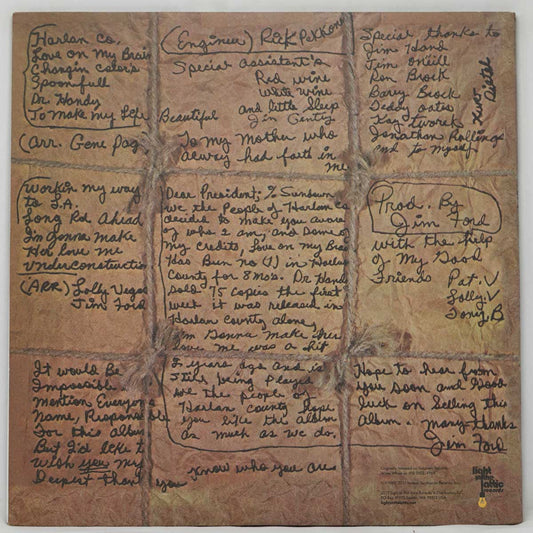 Harlan Co,
Love on My Brain
Changin Colors
Spoonfull
Dr. Handy
To Make my Life Beautiful
(Arr. Gene Pag
(Engineer) Rick Pekkonen
Special assistant's
Red wine
White wine
and little Sleep
Jim Gentry
To my Mother who
always had faith in
me
Special thanks to
Jim Hand
Jim O'Neill
Ron Brock
Barry Brock
Teddy Oates
Kay Twork
Jonathan Rollings
and to myself
Workin my way
to L.A.
Long Rd Ahead
I'm Gonna Make
Her love me
Under Construction
(Arr) Lolly Vegas
Jim Ford
Dear President; % Sundown
we the People of Harlan Co
decided to make you aware
of who I am, and some of
my credits, Love on my Brain
Has Bun no (1) in Harlan
County for 8 Mo's. Dr Handy
sold 75 copies the first
week it was released in
Harlan county alone,
I'm Gonna Make Her
love me was a hit
2 years ago and is
still being Played
we the people of
Harlan county hope
you like this album
as much as we do,
Prod. By
Jim Ford
with the help
of My Good
Friends Pat. V
Lolly. V
Tony. B
It would Be
Impossible
Mention Everyone
Name, Responsible
For this album
But I'd like t
Wish you my
Deepest thank you
know who you are
Hope to hear from
you soon and Good
luck on Selling this
album.. Many Thanks
Jim Ford
light
in the
attic
records